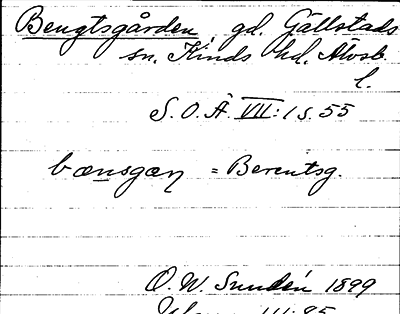 Bengtsgården, gd. Gällstads
sn. Kinds hd. Älvsb.
l.
S. O. Ä. VII: 1 s. 55
bænsgæn = Berentsg.
O. W. Sundén 1899